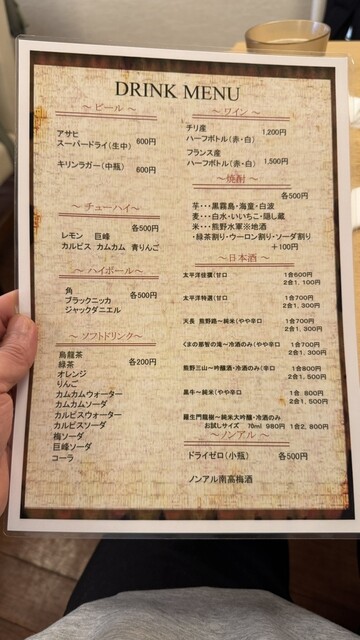 DRINK MENU
～ビール～
アサヒ
スーパードライ(生中) 600円
キリンラガー(中瓶) 600円
～チューハイ～
各500円
レモン 巨峰
カルピス カムカム 青りんご
～ハイボール～
角
ブラックニッカ 各500円
ジャックダニエル
～ソフトドリンク～
烏龍茶 各200円
緑茶
オレンジ
りんご
カムカムウォーター
カムカムソーダ
カルピスウォーター
カルピスソーダ
梅ソーダ
巨峰ソーダ
コーラ
～ワイン～
チリ産
ハーフボトル(赤・白) 1,200円
フランス産
ハーフボトル(赤・白) 1,500円
～焼酎～
各500円
芋・・・黒霧島・海童・白波
麦・・・白水・いいちこ・隠し蔵
米・・・熊野水軍※地酒
・緑茶割り・ウーロン割り・ソーダ割り
＋100円
～日本酒～
太平洋佳撰(甘口 1合600円
2合1,100円
太平洋特選(甘口 1合700円
2合1,300円
天長 熊野路～純米(やや辛口 1合700円
2合1,300円
くまの那智の滝～冷酒のみ(やや辛口 1合700円
2合1,300円
熊野三山～吟醸酒・冷酒のみ(辛口 1合800円
2合1,500円
黒牛～純米(やや辛口 1合 800円
2合1,500円
羅生門龍樹～純米大吟醸・冷酒のみ
お試しサイズ 70ml 980円 1合2,800円
～ノンアル～
ドライゼロ(小瓶) 各500円
ノンアル南高梅酒